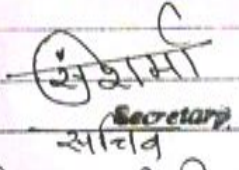 सं शर्मा
Secretary
सचिव